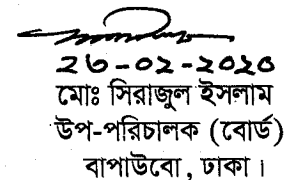 ২৬-০২-২০২০
মোঃ সিরাজুল ইসলাম
উপ-পরিচালক (বোর্ড)
বাপাউবো, ঢাকা।